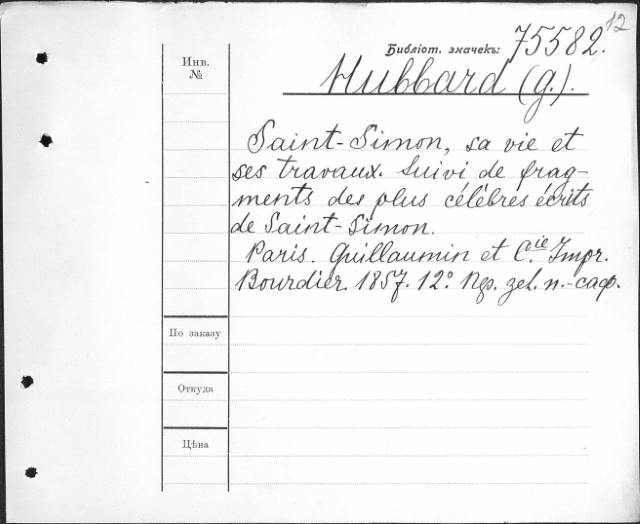 12
Библіот. значекъ: 75582.
Инв.
№
Hubbard (G.).
Saint-Simon, sa vie et
ses travaux. Suivi de frag-
ments des plus célèbres écrits
de Saint-Simon.
Paris. Guillaumin et Cie. Impr.
Bourdier. 1857. 12º
По заказу
Откуда
Цѣна